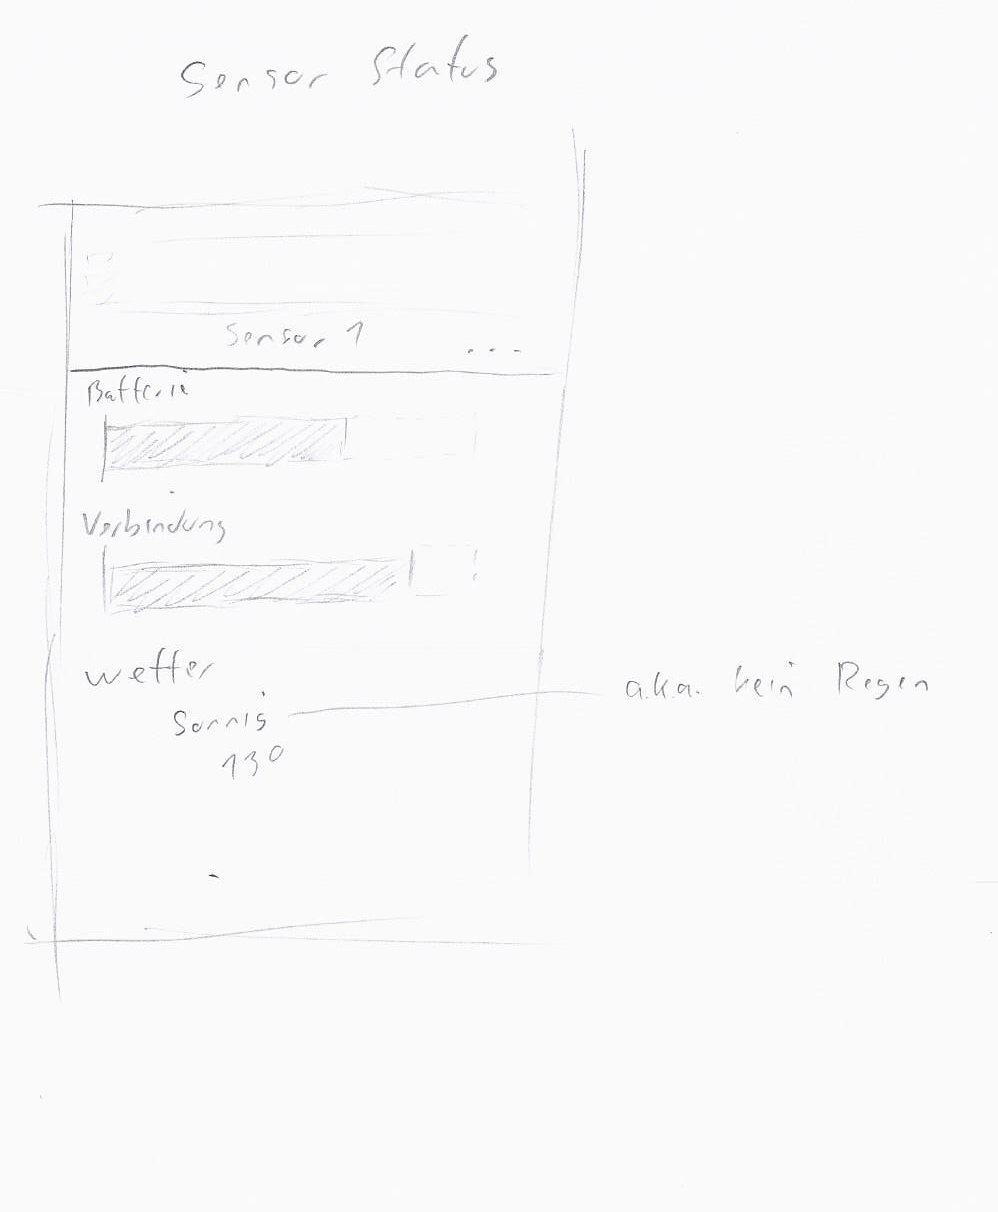 Sensor Status
Sensor 1
...
Batterie
Verbindung
Wetter
Sonnig
13°
a.k.a. kein Regen